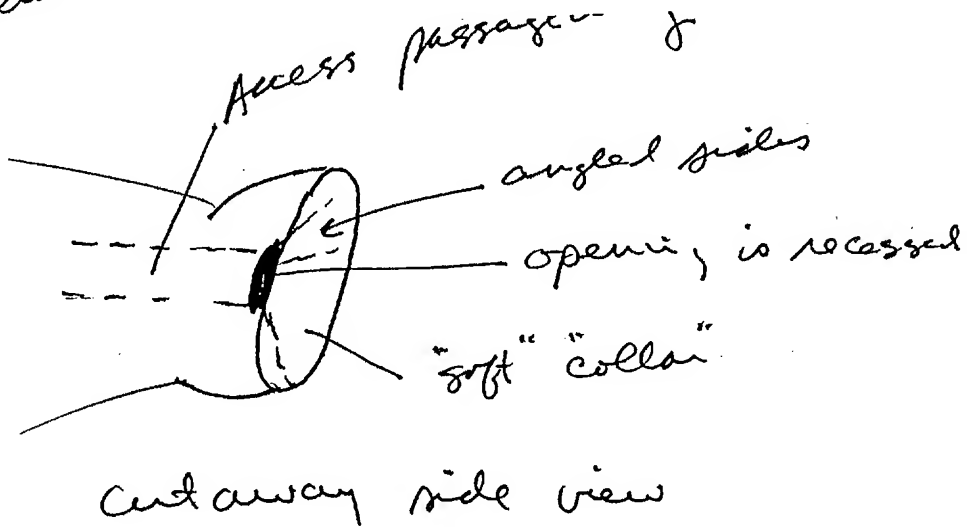 Access passage
angled sides
opening is recessed
"soft" "collar"
Cutaway side view